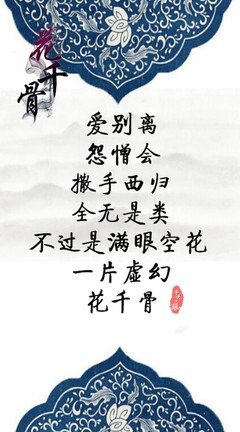 花千骨
爱别离
怨憎会
撒手西归
全无是类
不过是满眼空花
一片虚幻
花千骨